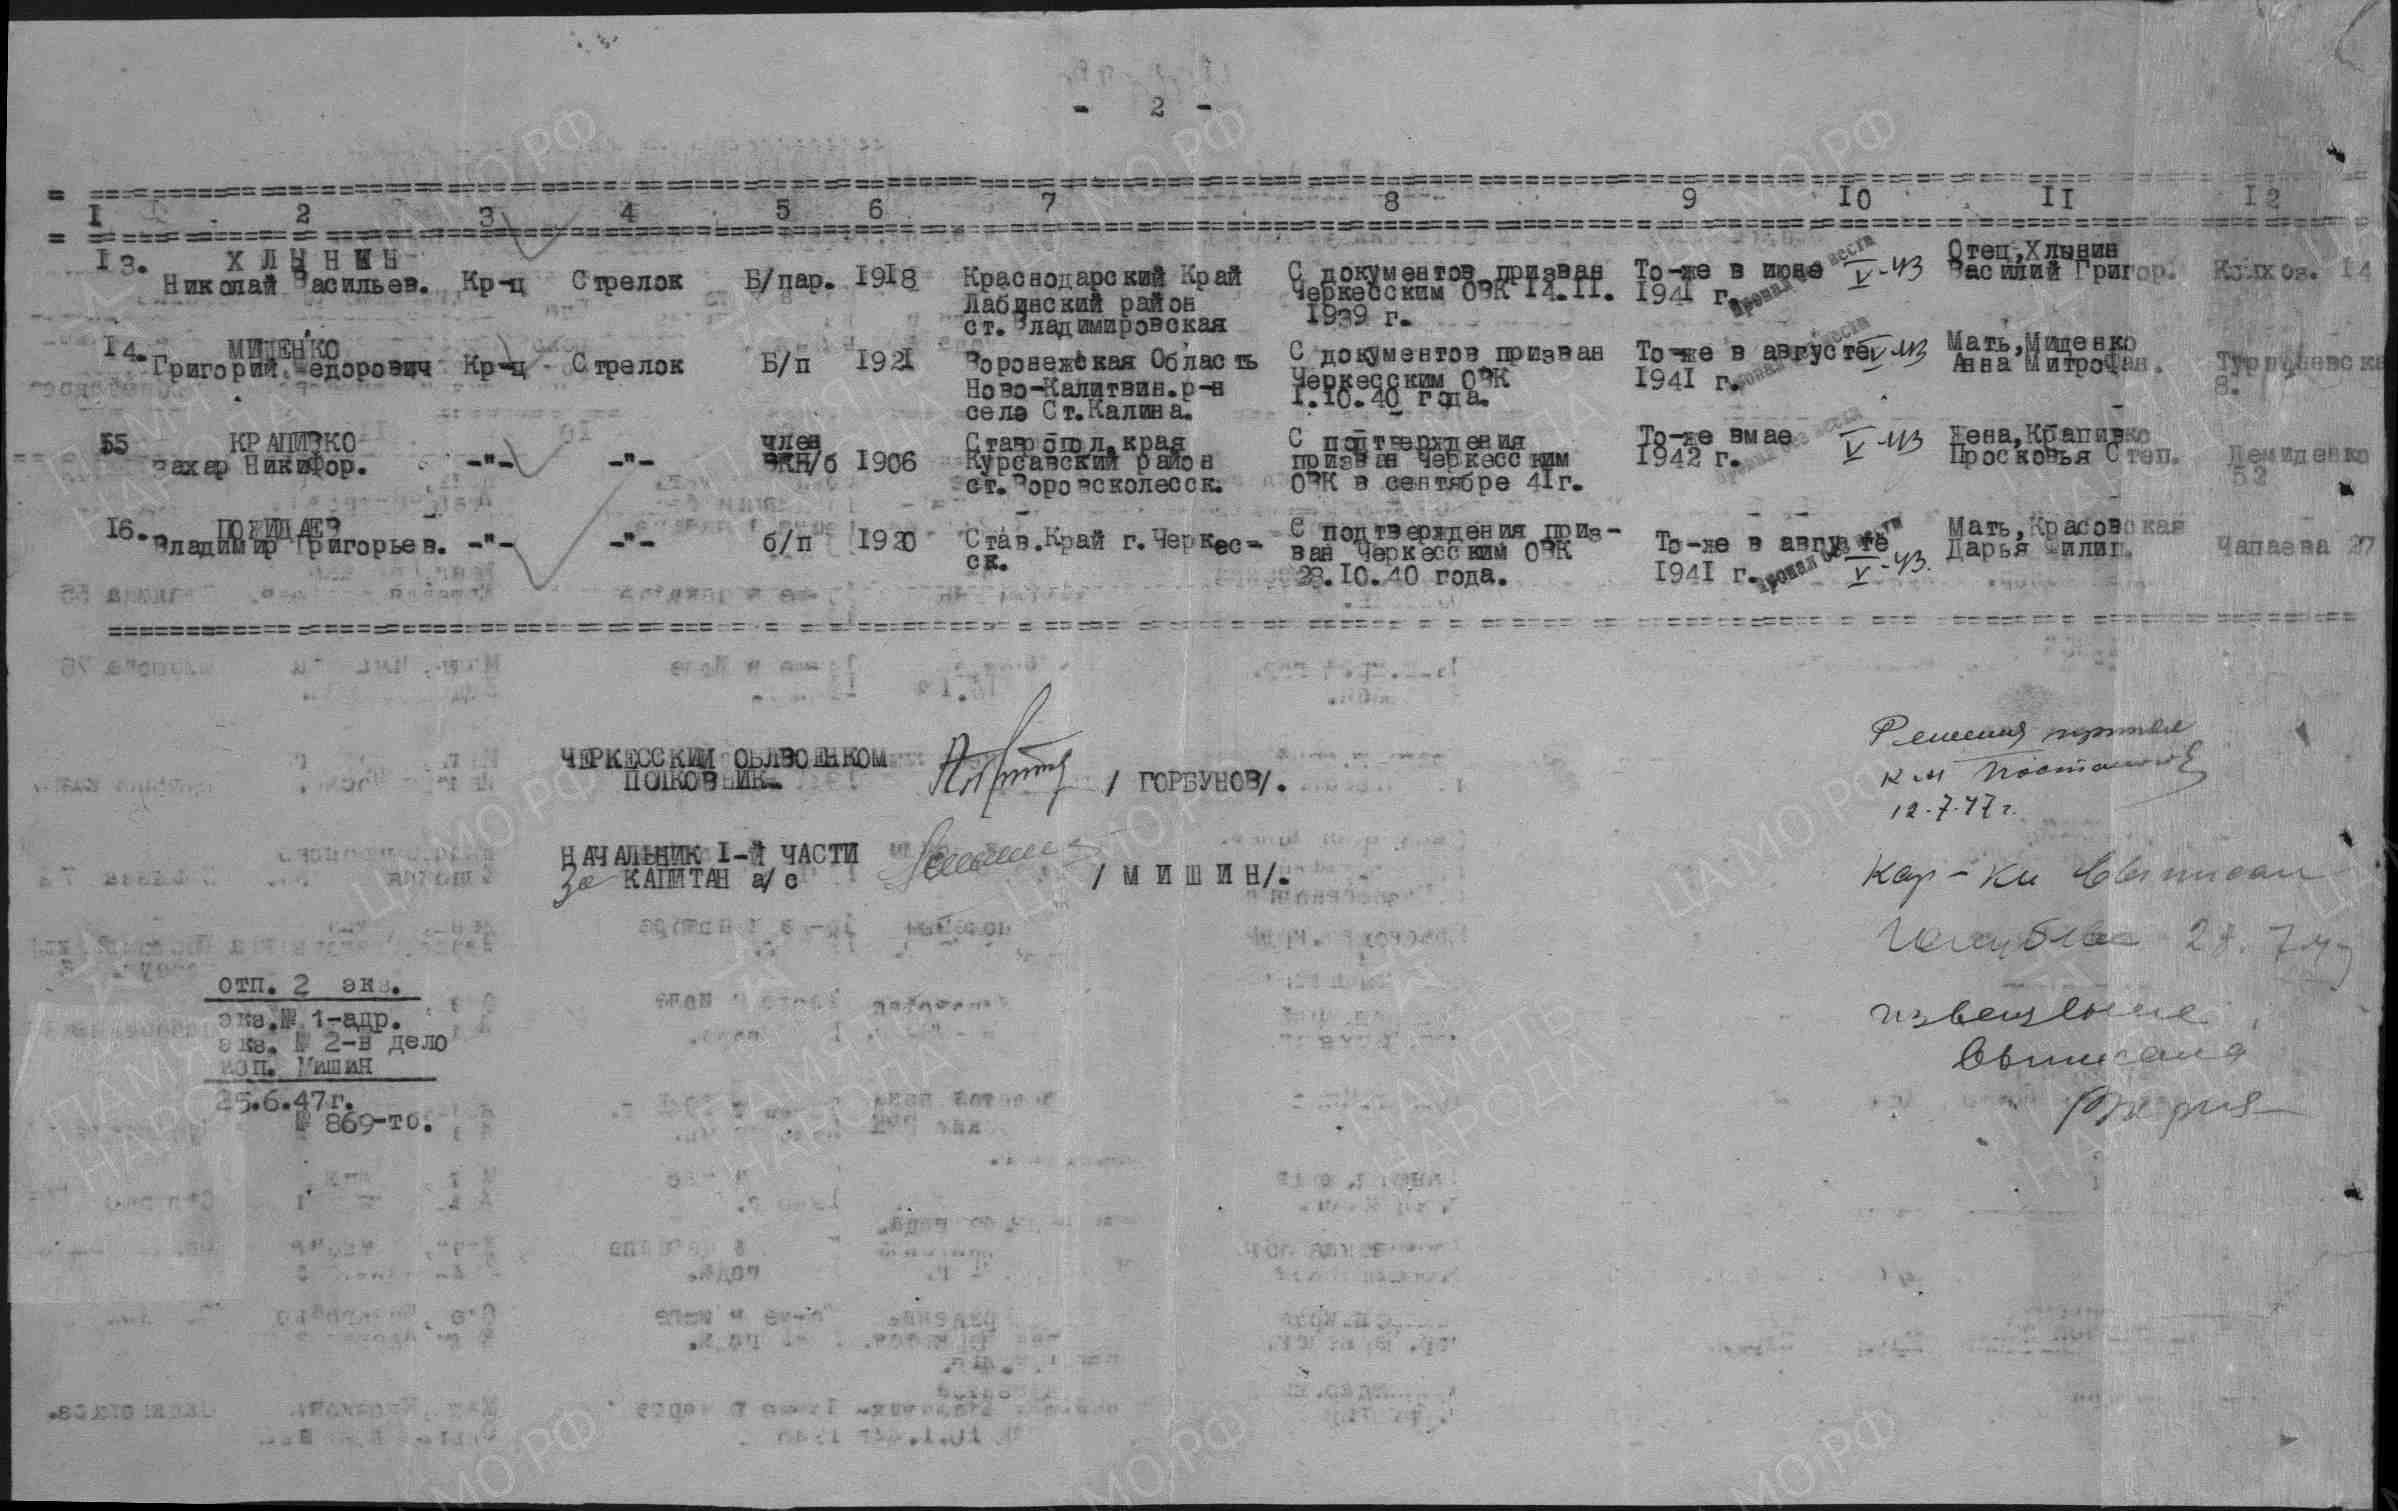 - 2 -
I 2 3 4 5 6 7 8 9 10 II 12
13. ХЛЫНИН
Николай Васильев. Кр-ц Стрелок Б/пар. 1918 Краснодарский Край
Лабинский район
ст. Владимировская
С документов призван
Черкесским ОВК 14.II.
1939 г.
То-же в июне
1941 г.
Пропал без вести
V-43
Отец,Хлынин
Василий Григор. Колхоз. 14
14. МИДЕНКО
Григорий Федорович Кр-ц Стрелок Б/п 1921 Воронежская Область
Ново-Калитвин.р-н
село Ст.Калина.
С документов призван
Черкесским ОВК
1.10.40 года.
То-же в августе
1941 г.
V-43
Мать,Миденко
Анна Митрофан.
8.
55 КРАПИВКО
Захар Никифор. -"- -"- член
ВКП/б 1906
Ставропол.края
Курсавский район
ст.Воровсколесск.
С подтверждения
призван Черкесским
ОВК в сентябре 41г.
То-же вмае
1942 г.
V-43
Жена,Крапивко
Просковья Степ. Демиденко
52
16. ПОЖИДАЕВ
Владимир Григорьев. -"- -"- б/п 1920 Став.Край г.Черкес-
ск.
С подтверждения приз-
ван Черкесским ОВК
28.10.40 года.
То-же в августе
1941 г.
Пропал без вести
V-43.
Мать,Красовская
Дарья Филип. Чапаева 27
ЧЕРКЕССКИЙ ОБЛВОЕНКОМ
ПОЛКОВНИК- / ГОРБУНОВ/.
НАЧАЛЬНИК I-Й ЧАСТИ
За КАПИТАН а/с / М И Ш И Н/.
Решения
12.7.47г.
Кар-ки выписал
28.7.47
извещение
выписала
отп. 2 экз.
экз.№ 1-адр.
экз. № 2-в дело
исп. Мишин
25.6.47г.
№ 869-то.
ЦА МО РФ
ПАМЯТЬ
НАРОДА